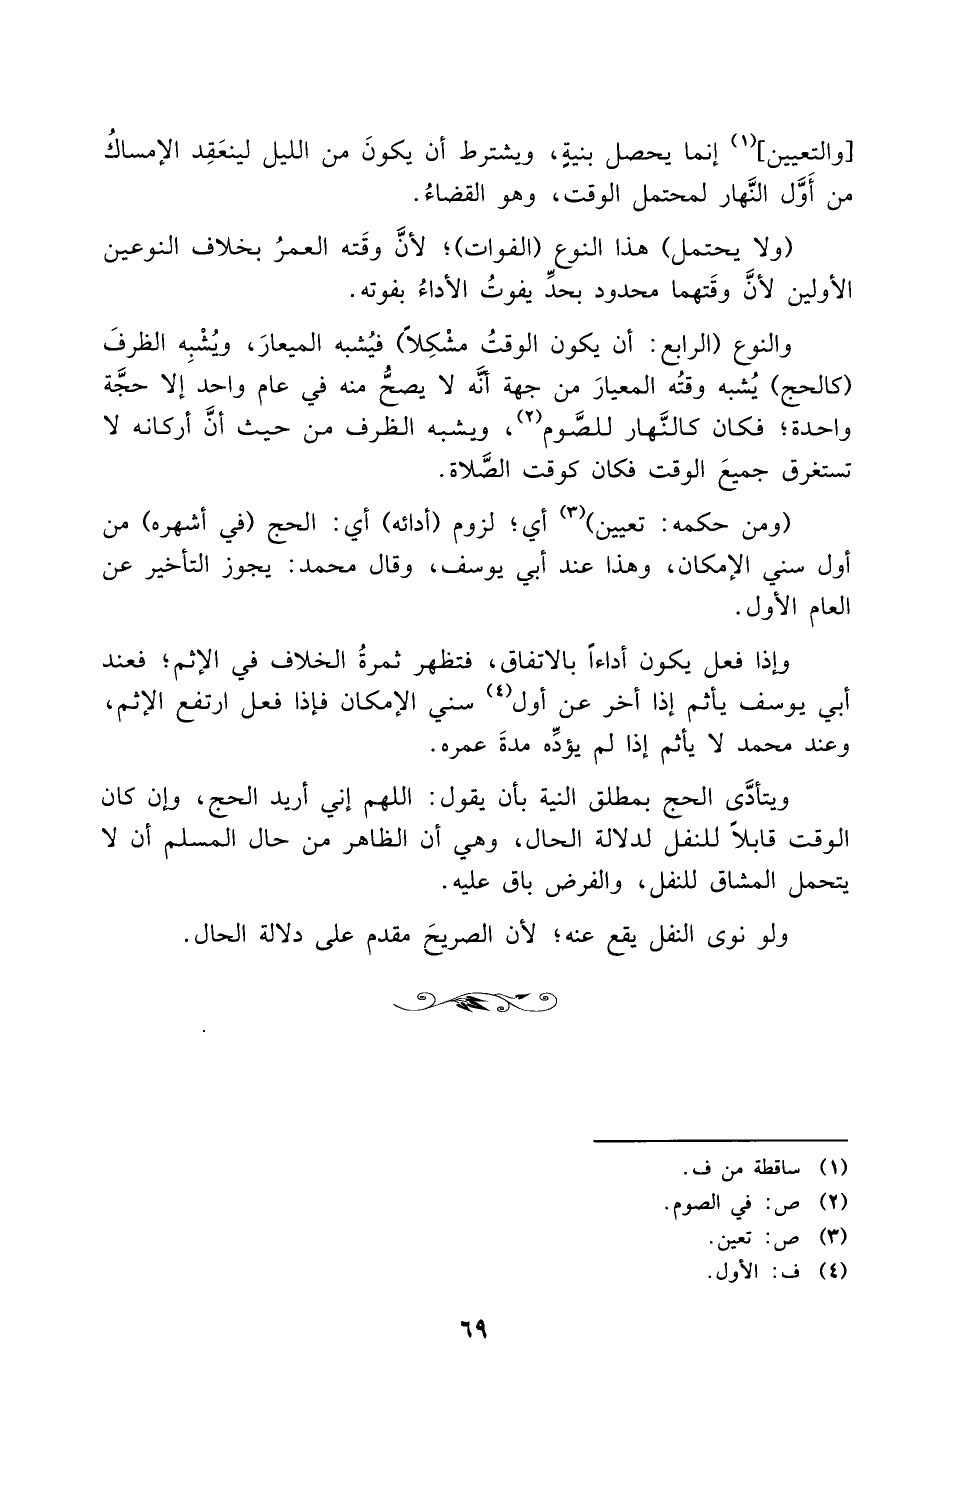 [والتعيين](١) إنما يحصل بنيةٍ، ويشترط أن يكونَ من الليل لينعَقِد الإمساكُ
من أَوَّل النَّهار لمحتمل الوقت، وهو القضاءُ.
(ولا يحتمل) هذا النوع (الفوات)؛ لأنَّ وقَته العمرُ بخلاف النوعين
الأولين لأنَّ وقَتهما محدود بحدٍّ يفوتُ الأداءُ بفوته.
والنوع (الرابع: أن يكون الوقتُ مشْكِلاً) فيُشبه الميعارَ، ويُشْبِه الظرفَ
(كالحج) يُشبه وقتُه المعيارَ من جهة أنَّه لا يصحُّ منه في عام واحد إلا حجَّة
واحدة؛ فكان كالنَّهار للصَّوم(٢)، ويشبه الظرف من حيث أنَّ أركانه لا
تستغرق جميعَ الوقت فكان كوقت الصَّلاة.
(ومن حكمه: تعيين)(٣) أي؛ لزوم (أدائه) أي: الحج (في أشهره) من
أول سني الإمكان، وهذا عند أبي يوسف، وقال محمد: يجوز التأخير عن
العام الأول.
وإذا فعل يكون أداءاً بالاتفاق، فتظهر ثمرةُ الخلاف في الإثم؛ فعند
أبي يوسف يأثم إذا أخر عن أول(٤) سني الإمكان فإذا فعل ارتفع الإثم،
وعند محمد لا يأثم إذا لم يؤدِّه مدةَ عمره.
ويتأدَّى الحج بمطلق النية بأن يقول: اللهم إني أريد الحج، وإن كان
الوقت قابلاً للنفل لدلالة الحال، وهي أن الظاهر من حال المسلم أن لا
يتحمل المشاق للنفل، والفرض باق عليه.
ولو نوى النفل يقع عنه؛ لأن الصريحَ مقدم على دلالة الحال.
(١) ساقطة من ف.
(٢) ص: في الصوم.
(٣) ص: تعين.
(٤) ف: الأول.
٦٩